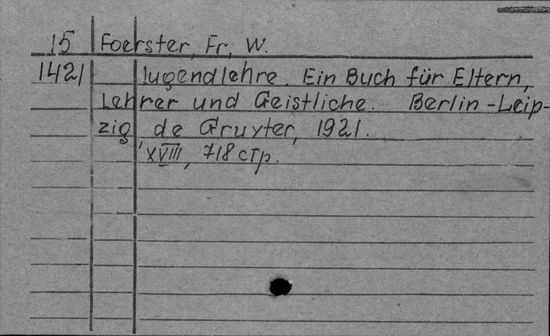 15 Foerster, Fr. W.
1421 Jugendlehre. Ein Buch für Eltern,
Lehrer und Geistliche. Berlin-Leip-
zig de Gruyter, 1921.
XVIII, 718 стр.